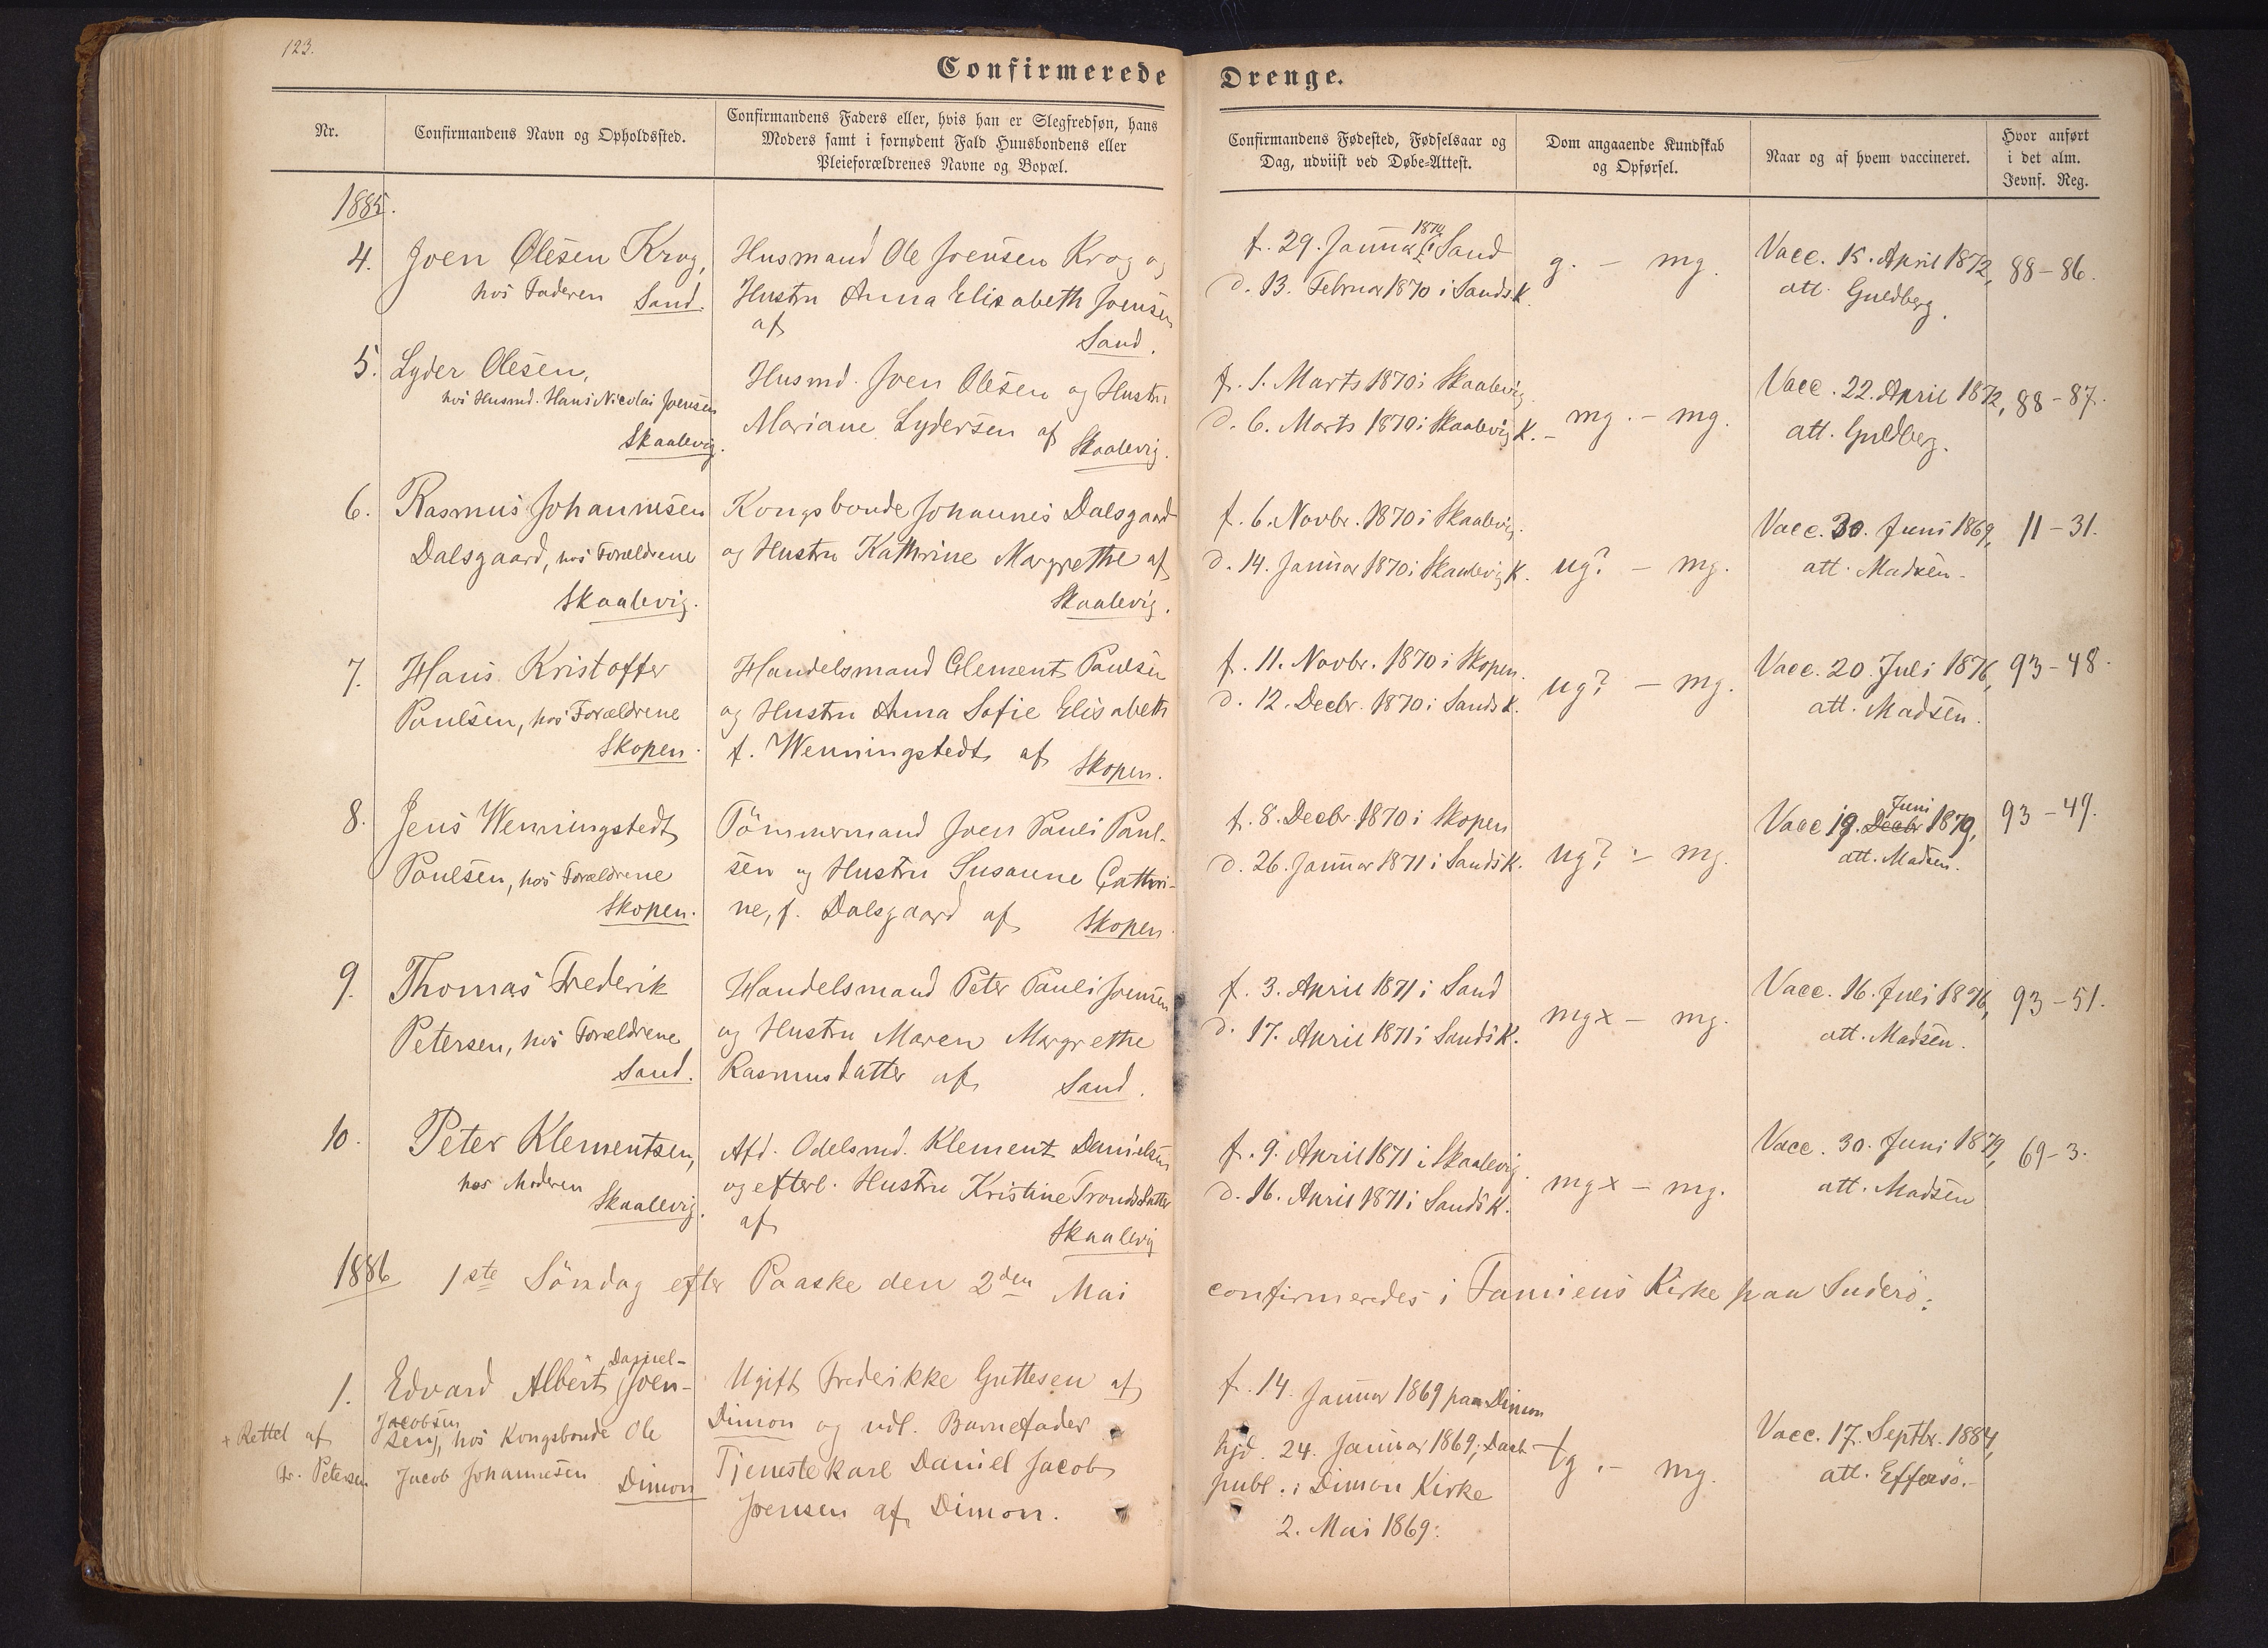 123.
Confirmerede Drenge.
Nr.
Confirmandens Navn og Opholdssted.
Confirmandens Faders eller, hvis han er Slegfredsøn, hans
Moders samt i fornødent Fald Huusbondens eller
Pleieforældrenes Navne og Bopæl.
Confirmandens Fødested, Fødselsaar og
Dag, udviist ved Døbe-Attest.
Dom angaaende Kundskab
og Opførsel.
Naar og af hvem vaccineret.
Hvor anført
i det alm.
Jevnf. Reg.
1885.
4.
Joen Olesen Krog,
hos Faderen Sand.
Husmand Ole Joensen Krog og
Hustru Anna Elisabeth Joensen
af
Sand.
1870
f. 29. Januar i Sand
d. 13. Februar 1870 i Sands K.
g. – mg.
Vacc. 15. April 1872,
att. Guldberg.
88–86.
5.
Lyder Olesen,
hos Husmd. Hans Nicolai Joensen
Skaalevig.
Husmd. Joen Olesen og Hustru
Mariane Lydersen af Skaalevig.
f. 1. Marts 1870 i Skaalevig.
d. 6. Marts 1870 i Skaalevig K.
mg. – mg.
Vacc. 22. April 1872,
att. Guldberg.
88–87.
6.
Rasmus Johannesen
Dalsgaard, hos Forældrene
Skaalevig.
Kongsbonde Johannes Dalsgaard
og Hustru Kathrine Margrethe af
Skaalevig.
f. 6. Novbr. 1870 i Skaalevig.
d. 14. Januar 1870 i Skaalevig K.
ug? – mg.
Vacc. 30. Juni 1869,
att. Madsen.
11–31.
7.
Hans Kristoffer
Poulsen, hos Forældrene
Skopen.
Handelsmand Clement Poulsen
og Hustru Anna Sofie Elisabeth
f. Wenningstedt af Skopen.
f. 11. Novbr. 1870 i Skopen.
d. 12. Decbr. 1870 i Sands K.
ug? – mg.
Vacc. 20. Juli 1876,
att. Madsen.
93–48.
8.
Jens Wenningstedt
Poulsen, hos Forældrene
Skopen.
Tömmermand Joen Pauli Poul-
sen og Hustru Susanne Cathri-
ne, f. Dalsgaard af Skopen.
f. 8. Decbr. 1870 i Skopen
d. 26. Januar 1871 i Sands K.
ug? – mg.
Juni
Vacc 19. Decbr 1879,
att. Madsen.
93–49.
9.
Thomas Frederik
Petersen, hos Forældrene
Sand.
Handelsmand Peter Pauli Joensen
og Hustru Maren Margrethe
Rasmusdatter af Sand.
f. 3. April 1871 i Sand
d. 17. April 1871 i Sands K.
mgx – mg.
Vacc. 16. Juli 1876,
att. Madsen.
93–51.
10.
Peter Klementsen,
hos Moderen
Skaalevig.
Afd. Odelsmd. Klement Danielsen
og efterl. Hustru Kristine Trondsdatter
af
Skaalevig
f. 9. April 1871 i Skaalevig.
d. 16. April 1871 i Sands K.
mgx – mg.
Vacc. 30. Juni 1879,
att. Madsen
69–3.
1886 1ste Söndag efter Paaske den 2den Mai confirmeredes i Famiens Kirke paa Suderö:
1.
Daniel-
Edvard Albert Joen-
Jacobsen
sen, hos Kongsbonde Ole
Jacob Johannesen Dimon
+ Rettel af
Fr. Petersen
Ugift Frederikke Guttesen af
Dimon og udl. Barnefader
Tjenestekarl Daniel Jacob
Joensen af Dimon.
f. 14. Januar 1869 paa Dimon
hjd. 24. Januar 1869; Daab
publ. i Dimon Kirke
2. Mai 1869:
tg. – mg.
Vacc. 17. Septbr. 1884,
att. Effersö.